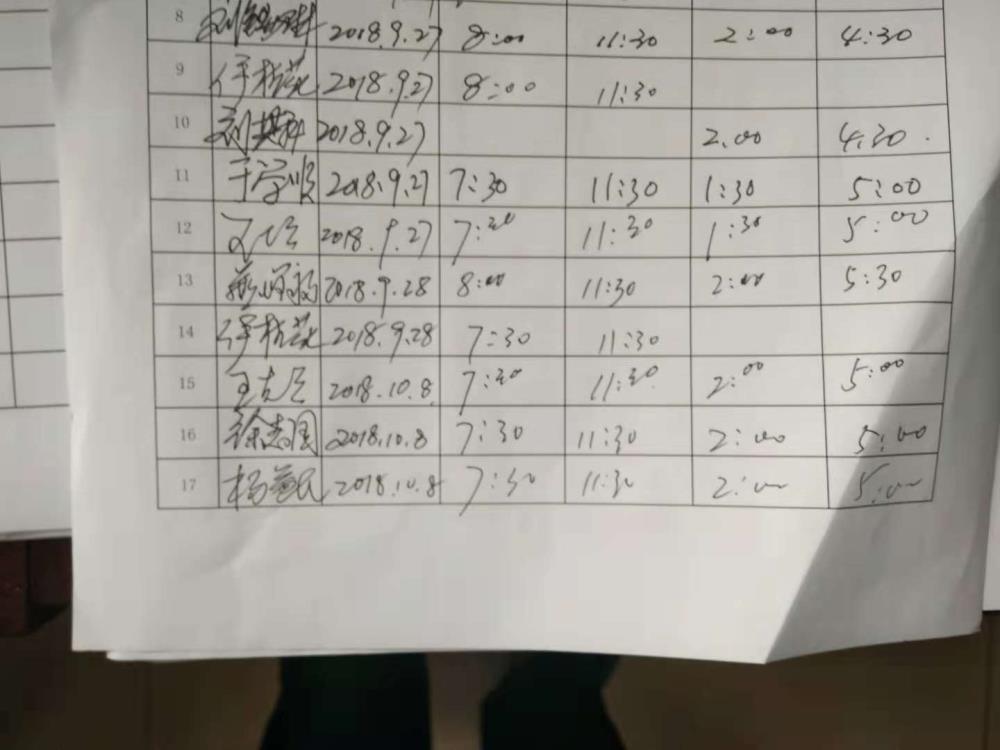 8 2018.9.27 8:00 11:30 2:00 4:30
9 2018.9.27 8:00 11:30
10 2018.9.27 2.00 4.30.
11 于学顺 2018.9.27 7:30 11:30 1:30 5:00
12 2018.9.27 7:30 11:30 1:30 5:00
13 2018.9.28 8:00 11:30 2:00 5:30
14 2018.9.28 7:30 11:30
15 2018.10.8 7:30 11:30 2:00 5:00
16 徐志国 2018.10.8 7:30 11:30 2:00 5:00
17 2018.10.8 7:30 11:30 2:00 5:00